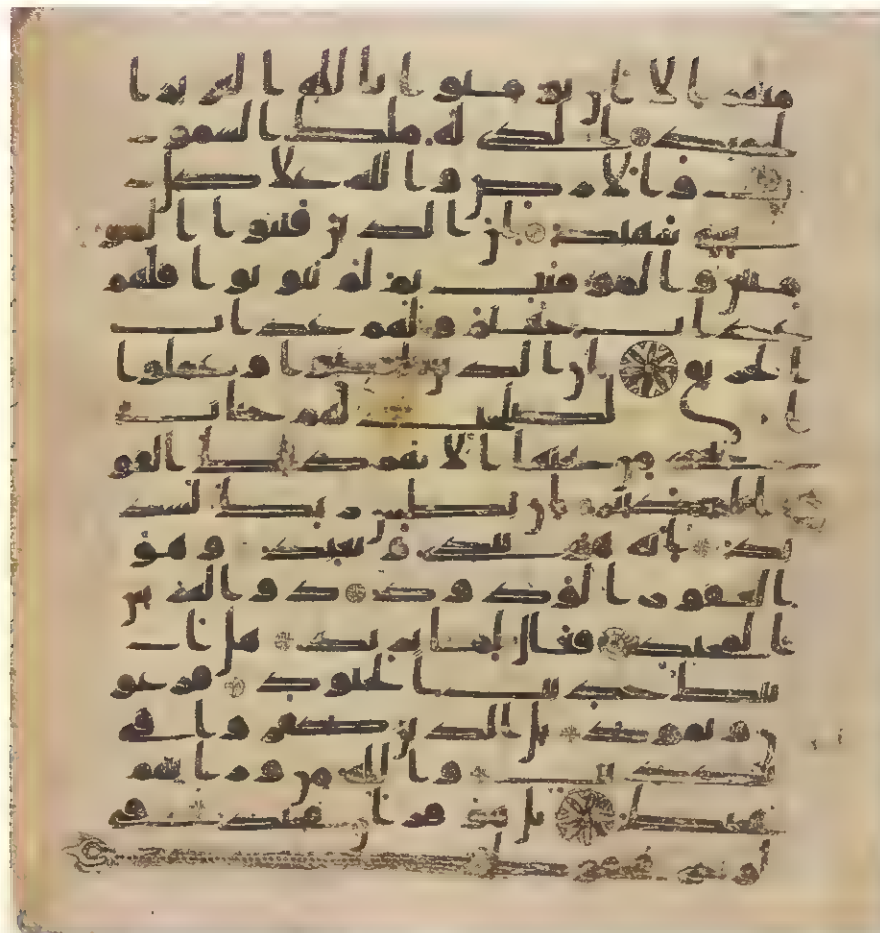 منهم الا ان يومنوا بالله العزيز ا
لحميد الذي له ملك السمو
ت والارض والله على كل
شي شهيد ان الذين فتنوا المو
منين والمومنت ثم لم يتوبوا فلهم
عذاب جهنم ولهم عذاب
الحريق ان الذين امنوا وعملوا
ا لصلحت لهم جنت
تجري من تحتها الانهر ذلك الفو
ز الكبير ان بطش ربك لشد
يد انه هو يبدي ويعيد وهو
الغفور الودود ذو العر
ش المجيد فعال لما يريد هل ا
تك حديث الجنود فرعو
ن وثمود بل الذين كفروا في
تكذيب والله من ورايهم
محيط بل هو قران مجيد في
لوح محفوظ